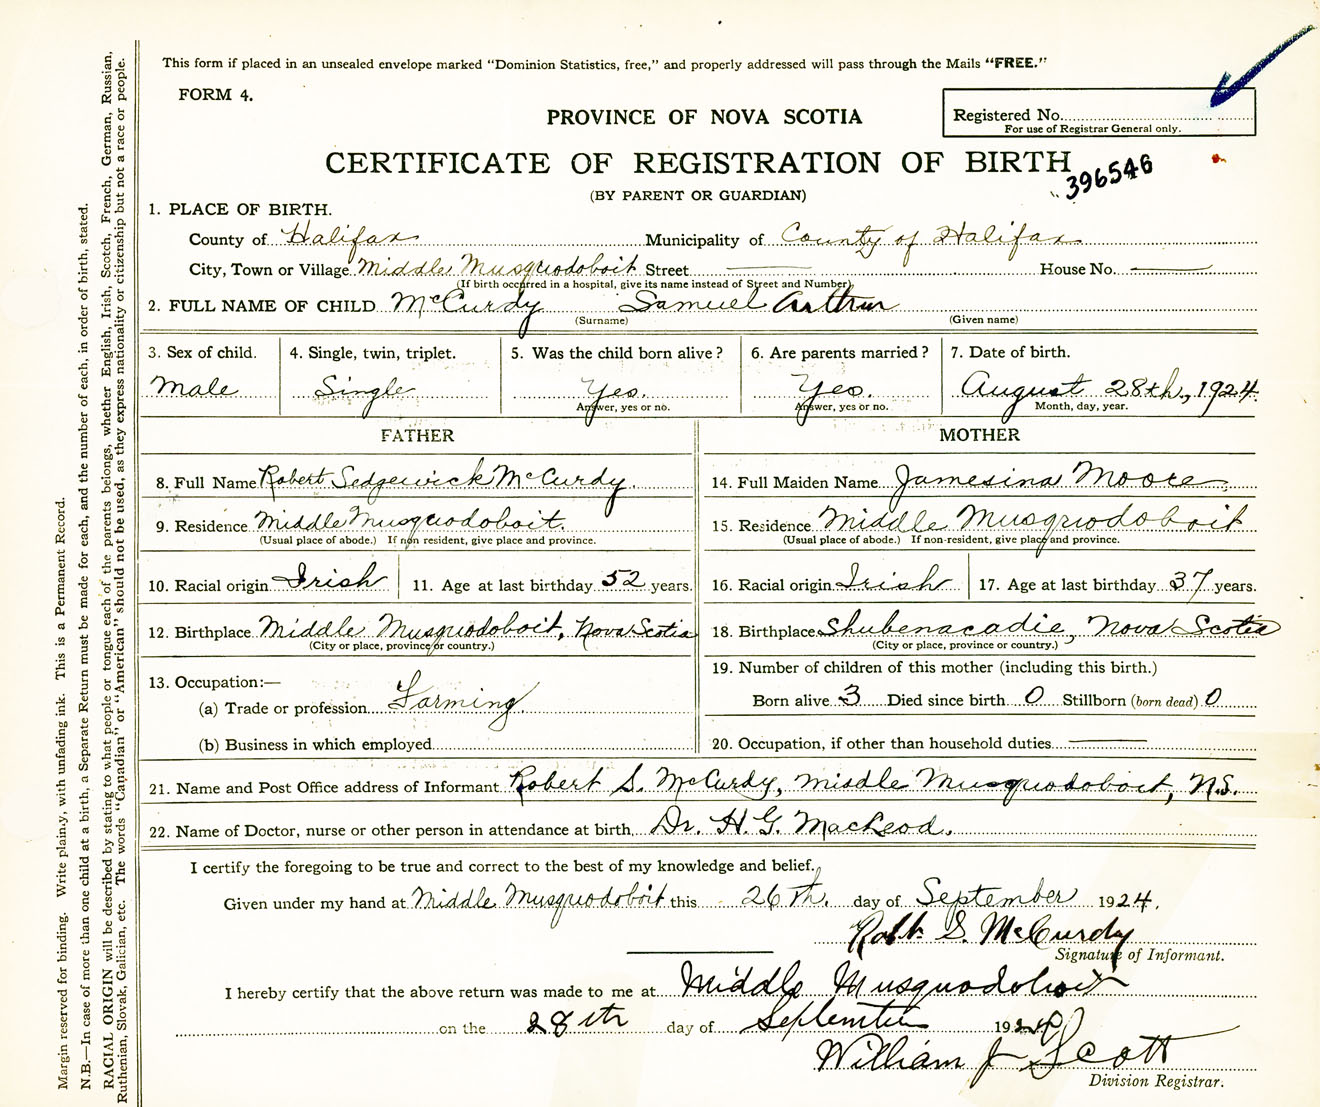 This form if placed in an unsealed envelope marked "Dominion Statistics, free," and properly addressed will pass through the Mails "FREE."
FORM 4.
PROVINCE OF NOVA SCOTIA
Registered No.
For use of Registrar General only.
CERTIFICATE OF REGISTRATION OF BIRTH
396546
(BY PARENT OR GUARDIAN)
1. PLACE OF BIRTH.
County of Halifax Municipality of County of Halifax
City, Town or Village Middle Musquodoboit Street House No.
(If birth occurred in a hospital, give its name instead of Street and Number)
2. FULL NAME OF CHILD McCurdy Samuel Arthur
(Surname) (Given name)
3. Sex of child. 4. Single, twin, triplet. 5. Was the child born alive? 6. Are parents married? 7. Date of birth.
Male Single Yes. Yes. August 28th, 1924.
Answer, yes or no. Answer, yes or no. Month, day, year.
FATHER MOTHER
8. Full Name Robert Sedgewick McCurdy. 14. Full Maiden Name Jamesina Moore.
9. Residence Middle Musquodoboit. 15. Residence Middle Musquodoboit
(Usual place of abode.) If non resident, give place and province. (Usual place of abode.) If non-resident, give place and province.
10. Racial origin Irish 11. Age at last birthday 52 years. 16. Racial origin Irish 17. Age at last birthday 37 years.
12. Birthplace Middle Musquodoboit, Nova Scotia 18. Birthplace Shubenacadie, Nova Scotia
(City or place, province or country.) (City or place, province or country.)
13. Occupation:— 19. Number of children of this mother (including this birth.)
(a) Trade or profession Farming. Born alive 3 Died since birth 0 Stillborn (born dead) 0
(b) Business in which employed 20. Occupation, if other than household duties
21. Name and Post Office address of Informant Robert S. McCurdy, Middle Musquodoboit, N.S.
22. Name of Doctor, nurse or other person in attendance at birth Dr. H. G. MacLeod.
I certify the foregoing to be true and correct to the best of my knowledge and belief.
Given under my hand at Middle Musquodoboit this 26th. day of September 1924.
Robt. S. McCurdy
Signature of Informant.
I hereby certify that the above return was made to me at Middle Musquodoboit
on the 28th day of September 1924
William J Scott
Division Registrar.
Margin reserved for binding. Write plainly, with unfading ink. This is a Permanent Record.
N.B.—In case of more than one child at a birth, a Separate Return must be made for each, and the number of each, in order of birth, stated.
RACIAL ORIGIN will be described by stating to what people or tongue each of the parents belongs, whether English, Irish, Scotch, French, German, Russian,
Ruthenian, Slovak, Galician, etc. The words "Canadian" or "American" should not be used, as they express nationality or citizenship but not a race or people.